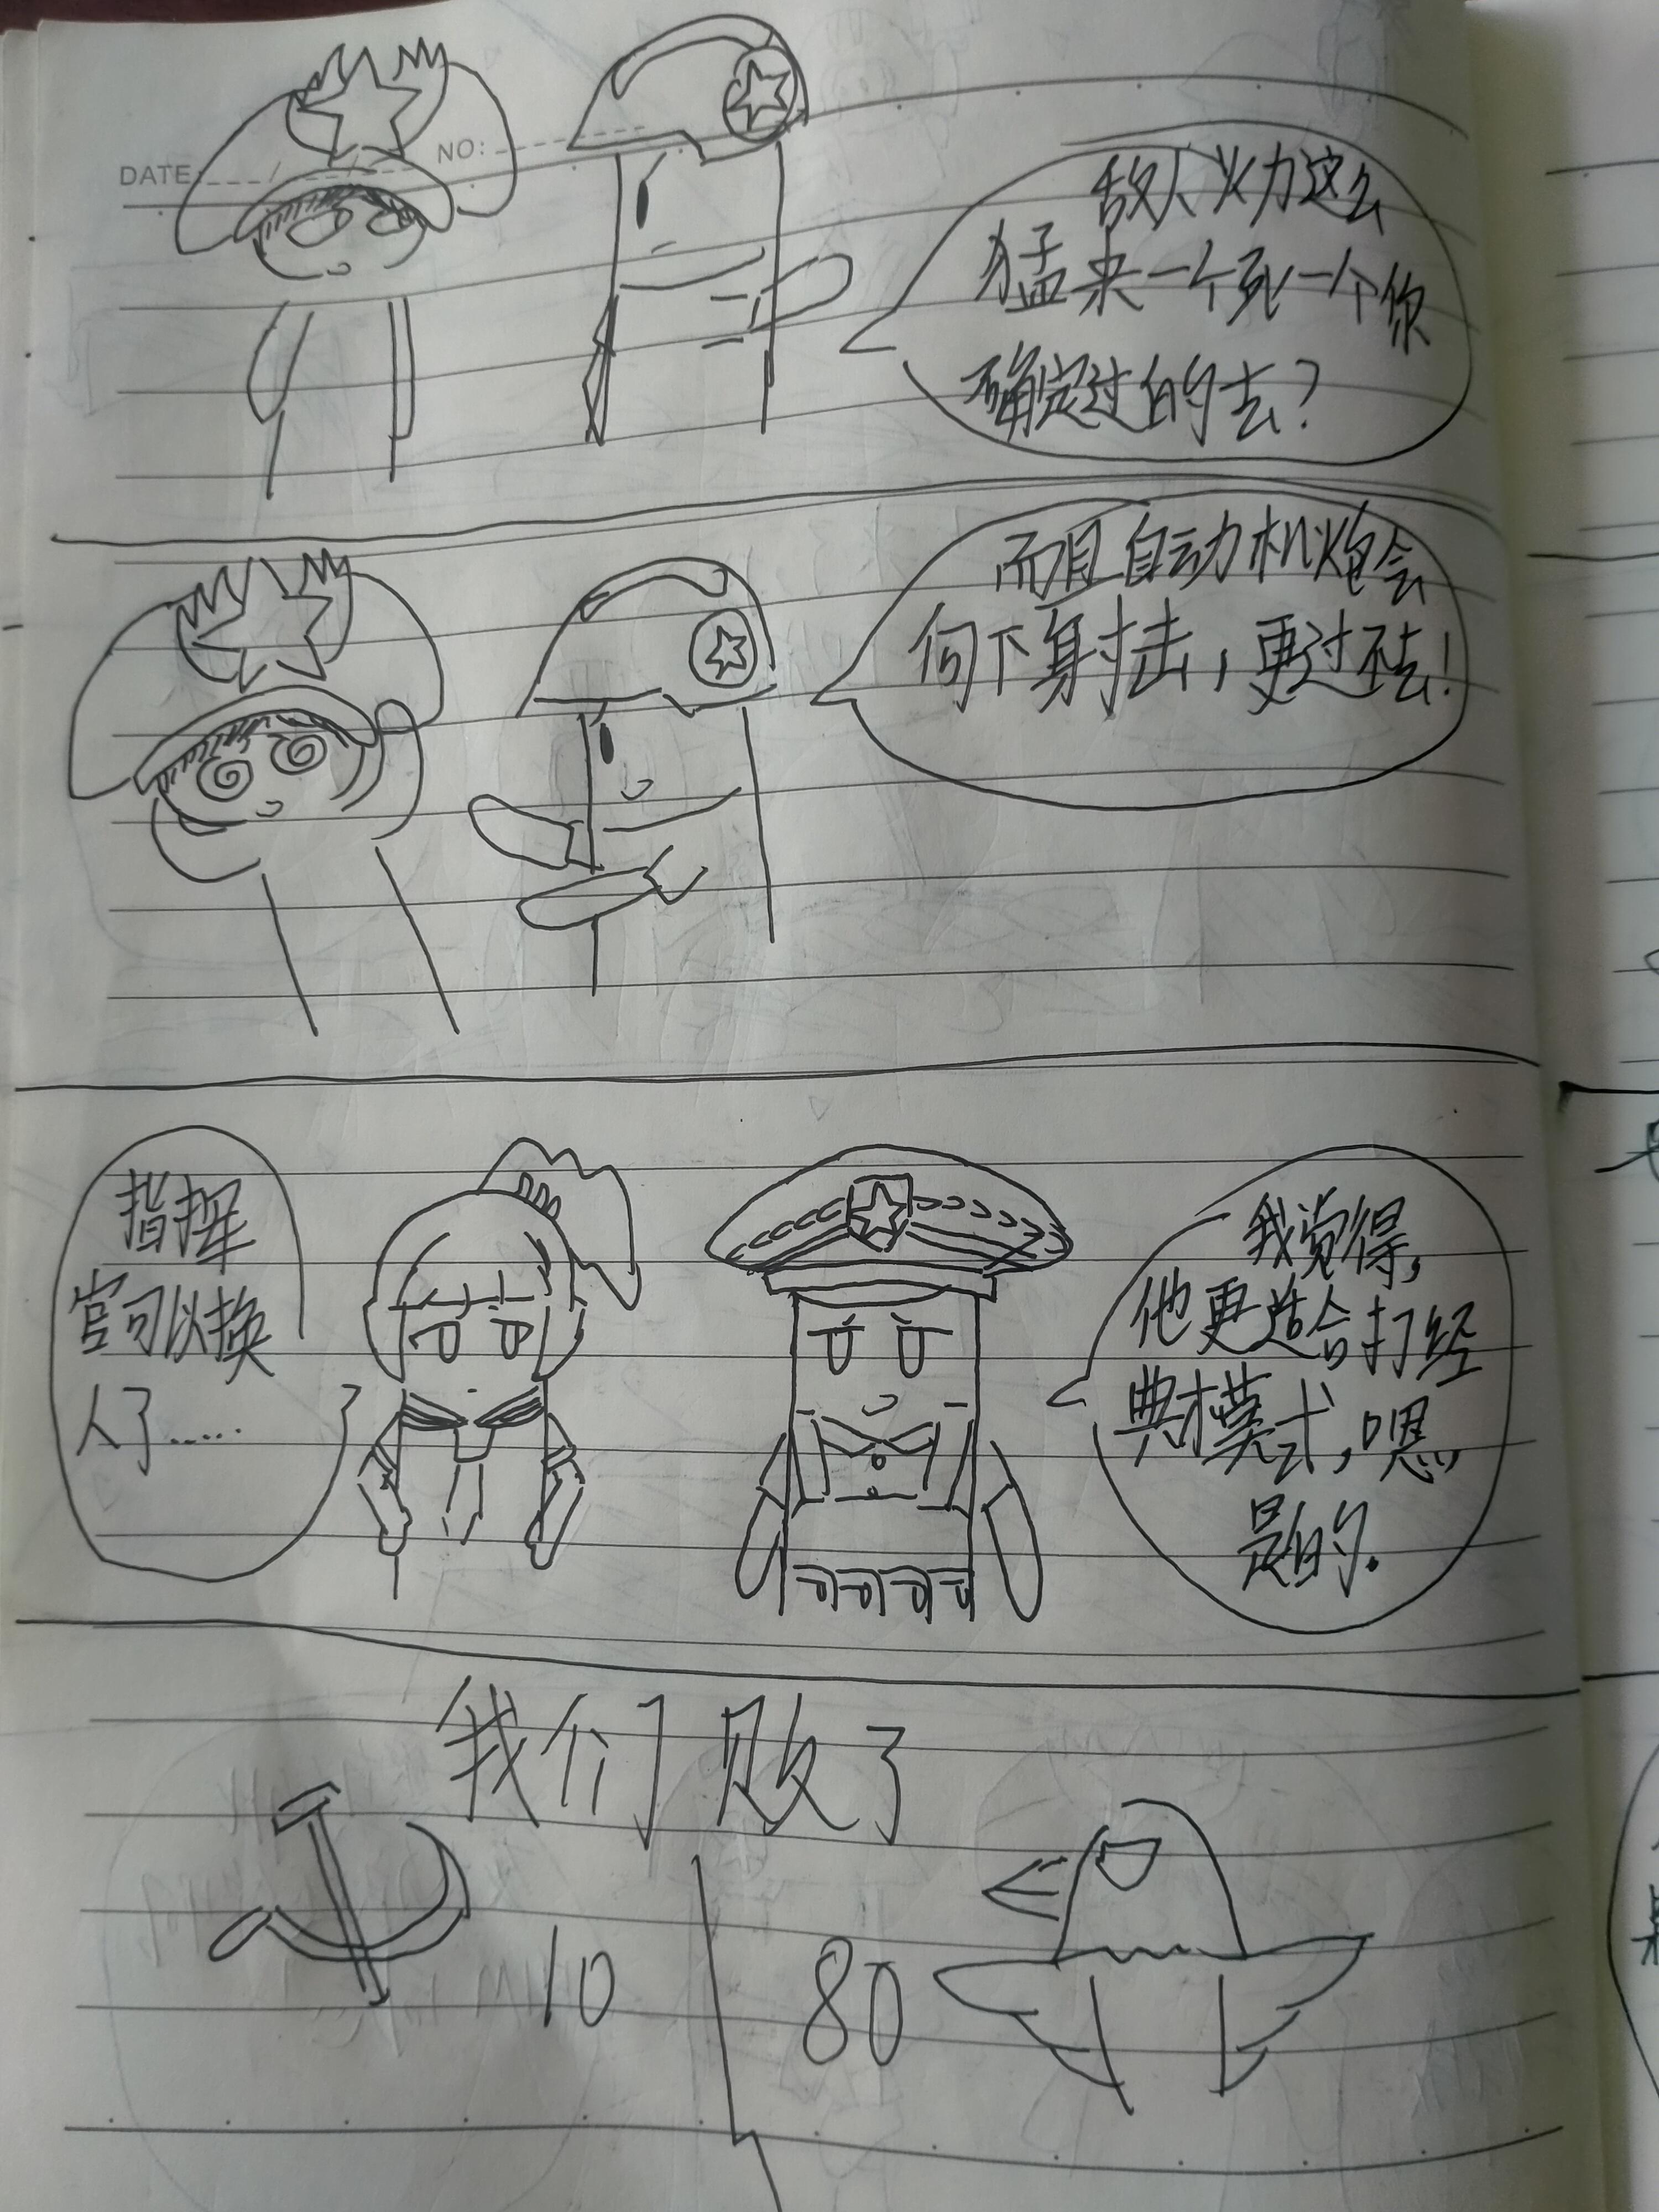 DATE: / /
NO:
敌人火力这么
猛来一个死一个你
确定过的去?
而且自动机炮会
向下射击,更过不去!
指挥
官可以换
人了……
我觉得,
他更适合打经
典模式,嗯,
是的.
我们败了
10
80